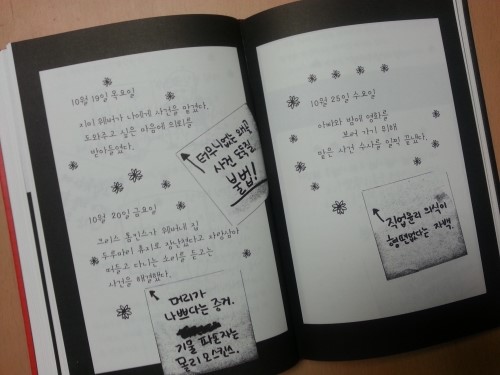 10월 19일 목요일
지미 웨버가 나에게 사건을 맡겼다.
도와주고 싶은 마음에 의뢰를
받아들였다.
터무니없는 왜곡
사건 도둑질
불법!
10월 20일 금요일
홉킨스가 웨버네 집
휴지로 장난쳤다고 사람들이
떠들고 다니는 소리를 듣고는
사건을 해결했다.
머리가
나쁘다는 증거.
기물 파손자는
몰리 오스킨스.
10월 25일 수요일
아빠와 밤에 영화를
보러 가기 위해
맡은 사건 수사를 일찍 끝냈다.
직업윤리 의식이
형편없다는 자백.